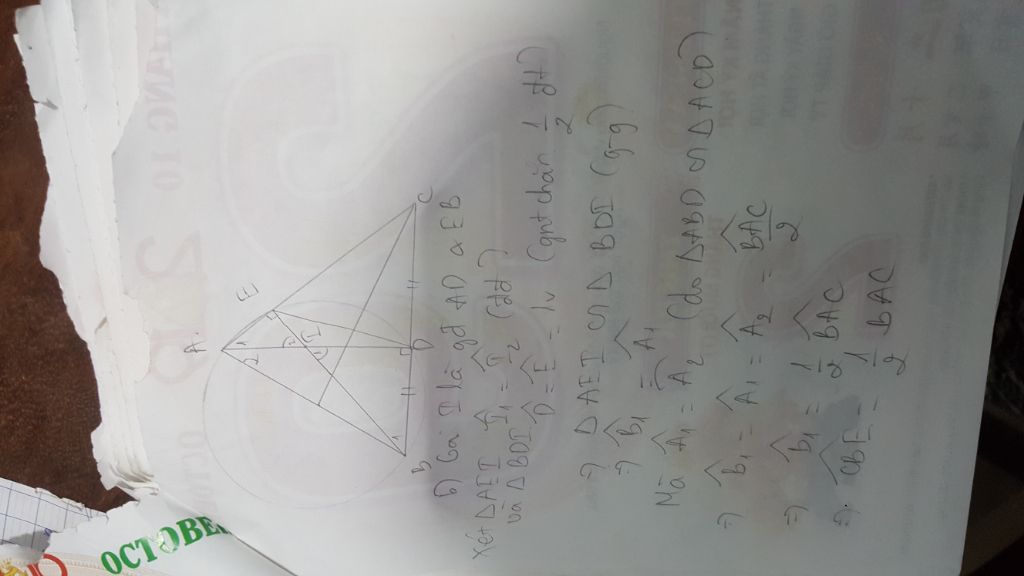 A
E
2 1
2
1
I
1
B
D
C
b) Gọi I là gđ AD & EB
Xét ΔAEI và ΔBDI
Î₁ = Î₂ (đđ)
D̂ = Ê = 1v (gnt chắn 1/2 đt)
=> ΔAEI ∽ ΔBDI (g-g)
=> B̂₁ = Â₁
Mà Â₁ = Â₂ (do ΔABD ∽ ΔACD)
=> B̂₁ = Â₁ = Â₂ = BAC/2
=> B̂₁ = 1/2 BAC
=> CBE = 1/2 BAC
OCTOBER